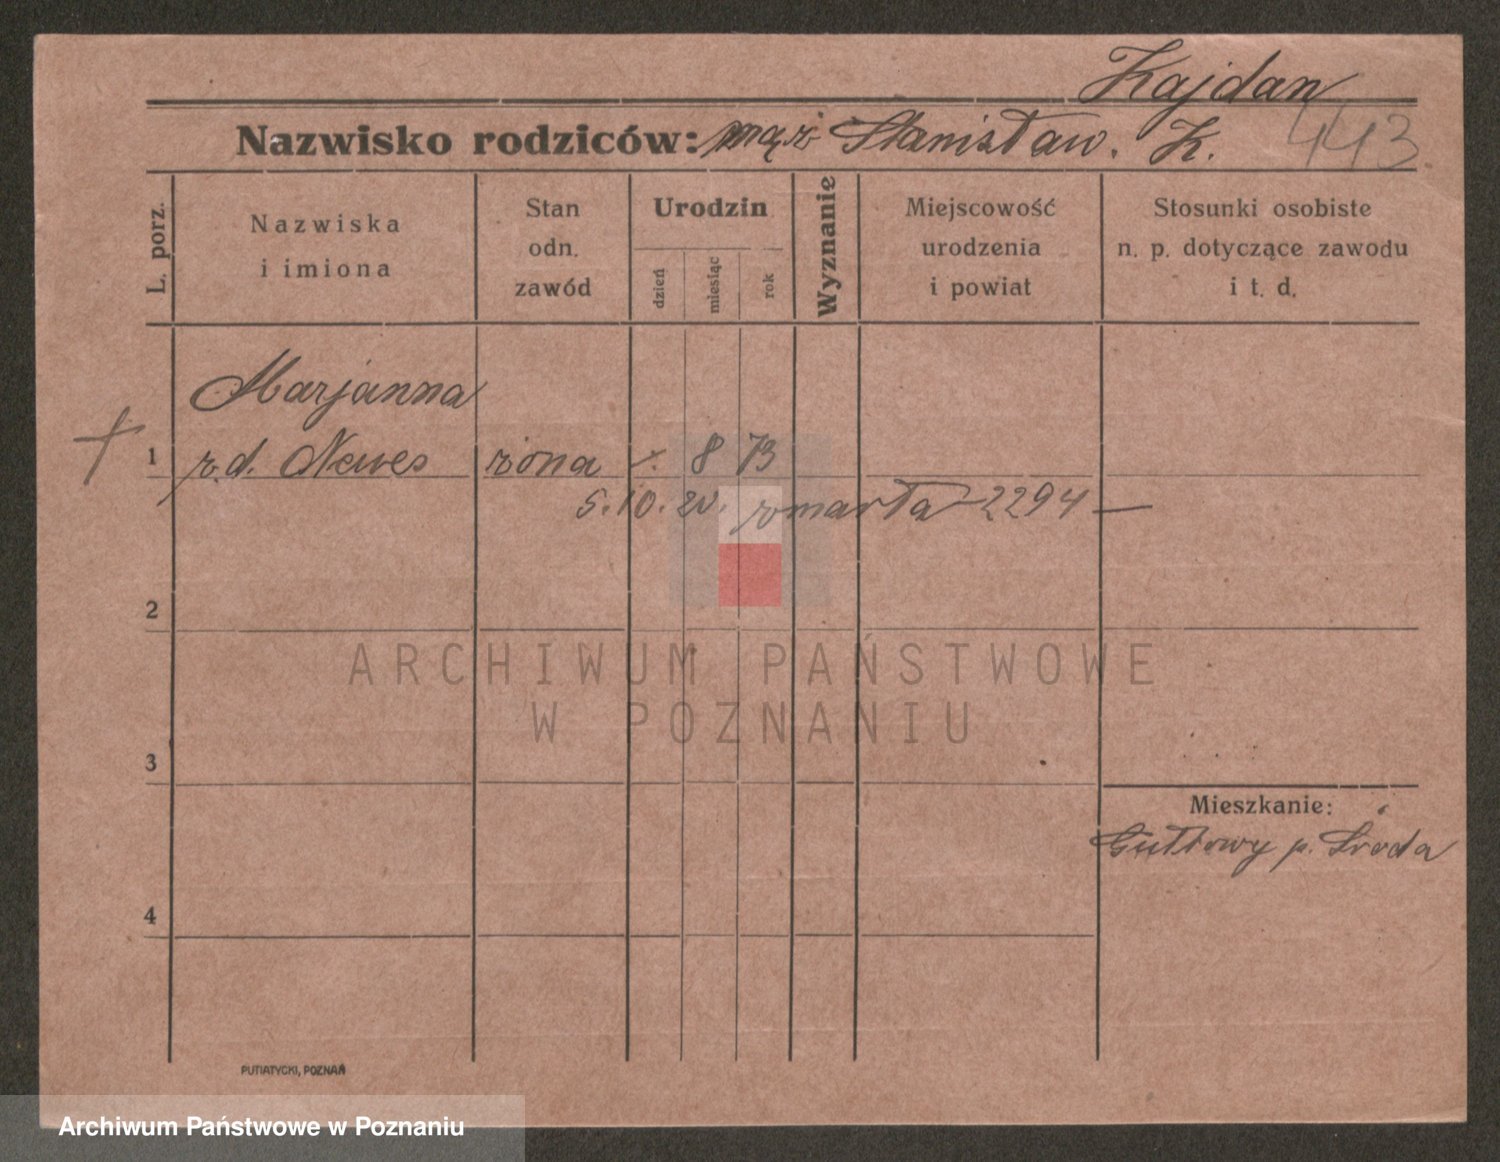 Kajdan
Nazwisko rodziców: mąż Stanisław. K. 443
L. porz.
Nazwiska
i imiona
Stan
odn.
zawód
Urodzin
dzień
miesiąc
rok
Wyznanie
Miejscowość
urodzenia
i powiat
Stosunki osobiste
n. p. dotyczące zawodu
i t. d.
Marjanna
1 z. d. Newes żona 8 73
5. 10. 20. zmarła 2294 —
2
ARCHIWUM PAŃSTWOWE
W POZNANIU
3
Mieszkanie:
Gułtowy p. Środa
4
PUTIATYCKI, POZNAŃ
Archiwum Państwowe w Poznaniu